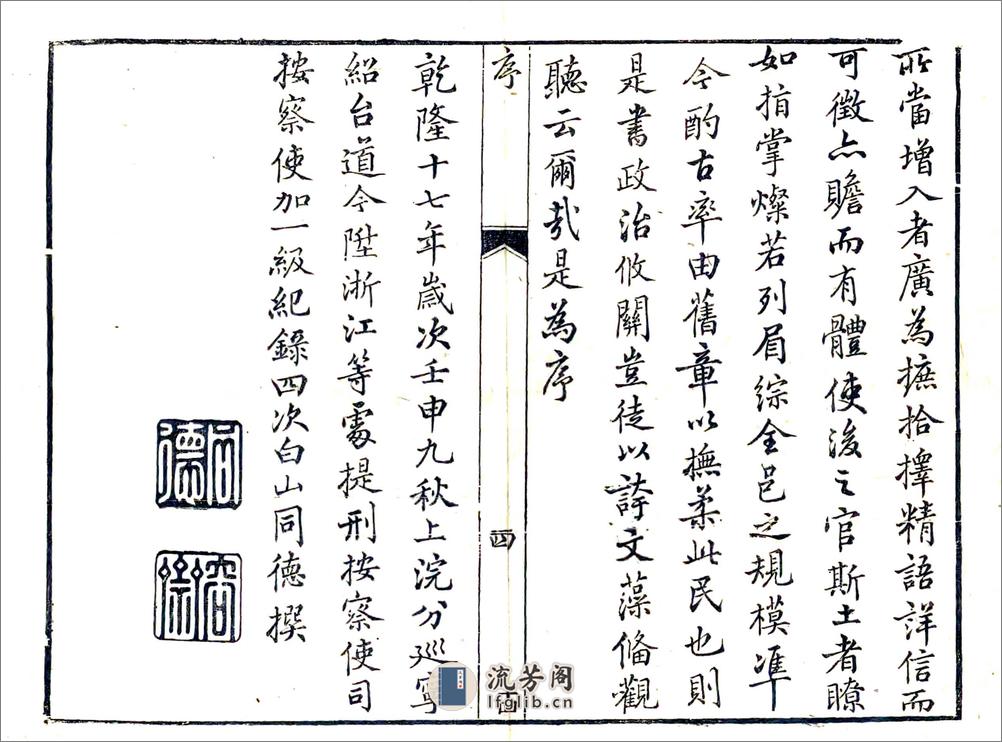 所當增入者廣為摭拾擇精語詳信而
可徵亦贍而有體使後之官斯土者瞭
如指掌燦若列眉綜全邑之規模準
今酌古率由舊章以撫柔此民也則
是書政治攸關豈徒以誇文藻偹觀
聽云爾哉是為序
序 四
乾隆十七年歲次壬申九秋上浣分巡寧
紹台道今陞浙江等處提刑按察使司
按察使加一級紀錄四次白山同德撰
同德
流芳阁
lfglib.cn